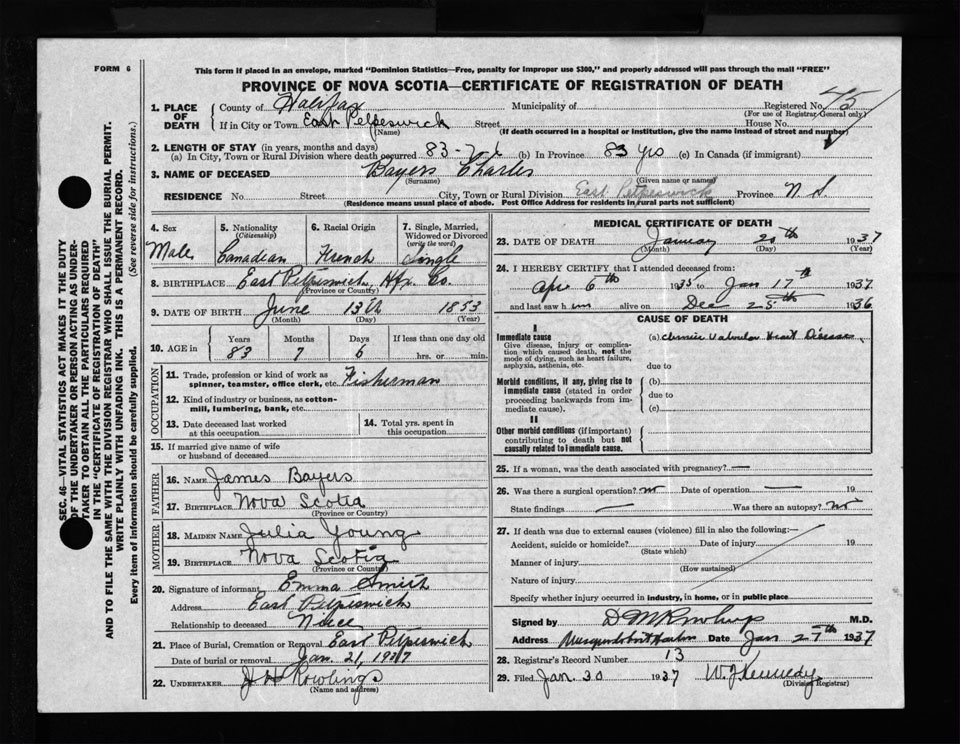 FORM 6
This form if placed in an envelope, marked "Dominion Statistics—Free, penalty for improper use $300," and properly addressed will pass through the mail "FREE"
PROVINCE OF NOVA SCOTIA—CERTIFICATE OF REGISTRATION OF DEATH
SEC. 46—VITAL STATISTICS ACT MAKES IT THE DUTY
OF THE UNDERTAKER OR PERSON ACTING AS UNDER-
TAKER TO OBTAIN ALL THE PARTICULARS REQUIRED
IN THE "CERTIFICATE OF REGISTRATION OF DEATH"
AND TO FILE THE SAME WITH THE DIVISION REGISTRAR WHO SHALL ISSUE THE BURIAL PERMIT.
WRITE PLAINLY WITH UNFADING INK. THIS IS A PERMANENT RECORD.
Every item of information should be carefully supplied. (See reverse side for instructions.)
1. PLACE OF DEATH County of Halifax Municipality of Registered No. 45
(For use of Registrar General only)
If in City or Town East Petpeswick Street House No.
(Name) (If death occurred in a hospital or institution, give the name instead of street and number)
2. LENGTH OF STAY (in years, months and days)
(a) In City, Town or Rural Division where death occurred 83-7-6 (b) In Province 83 yrs (c) In Canada (if immigrant)
3. NAME OF DECEASED Bayers Charles
(Surname) (Given name or names)
RESIDENCE No. Street City, Town or Rural Division East Petpeswick Province N. S.
(Residence means usual place of abode. Post Office Address for residents in rural parts not sufficient)
4. Sex Male
5. Nationality (Citizenship) Canadian
6. Racial Origin French
7. Single, Married, Widowed or Divorced (write the word) Single
8. BIRTHPLACE East Petpeswick Hfx. Co.
(Province or Country)
9. DATE OF BIRTH June 13th 1853
(Month) (Day) (Year)
10. AGE in Years 83 Months 7 Days 6 If less than one day old hrs. or min.
OCCUPATION
11. Trade, profession or kind of work as spinner, teamster, office clerk, etc. Fisherman
12. Kind of industry or business, as cotton-mill, lumbering, bank, etc.
13. Date deceased last worked at this occupation
14. Total yrs. spent in this occupation
15. If married give name of wife or husband of deceased
FATHER
16. NAME James Bayers
17. BIRTHPLACE Nova Scotia
(Province or Country)
MOTHER
18. MAIDEN NAME Julia Young
19. BIRTHPLACE Nova Scotia
(Province or Country)
20. Signature of informant Emma Smith
Address East Petpeswick
Relationship to deceased Niece
21. Place of Burial, Cremation or Removal East Petpeswick
Date of burial or removal Jan. 21, 1937
22. UNDERTAKER J H Rowlings
(Name and address)
MEDICAL CERTIFICATE OF DEATH
23. DATE OF DEATH January 20th 1937
(Month) (Day) (Year)
24. I HEREBY CERTIFY that I attended deceased from:
Apr 6th 1935 to Jan 17th 1937
and last saw him alive on Dec 25th 1936
CAUSE OF DEATH
I
Immediate cause
Give disease, injury or complication which caused death, not the mode of dying, such as heart failure, asphyxia, asthenia, etc.
(a) Chronic Valvular Heart Disease
due to
Morbid conditions, if any, giving rise to immediate cause (stated in order proceeding backwards from immediate cause).
(b)
due to
(c)
II
Other morbid conditions (if important) contributing to death but not causally related to immediate cause.
25. If a woman, was the death associated with pregnancy? —
26. Was there a surgical operation? no Date of operation — 19
State findings — Was there an autopsy? no
27. If death was due to external causes (violence) fill in also the following:—
Accident, suicide or homicide? Date of injury 19
(State which)
Manner of injury
(How sustained)
Nature of injury
Specify whether injury occurred in industry, in home, or in public place
Signed by M.D.
Address Musquodoboit Harbour Date Jan 27th 1937
28. Registrar's Record Number 13
29. Filed Jan. 30 1937 W. J Kennedy
(Division Registrar)